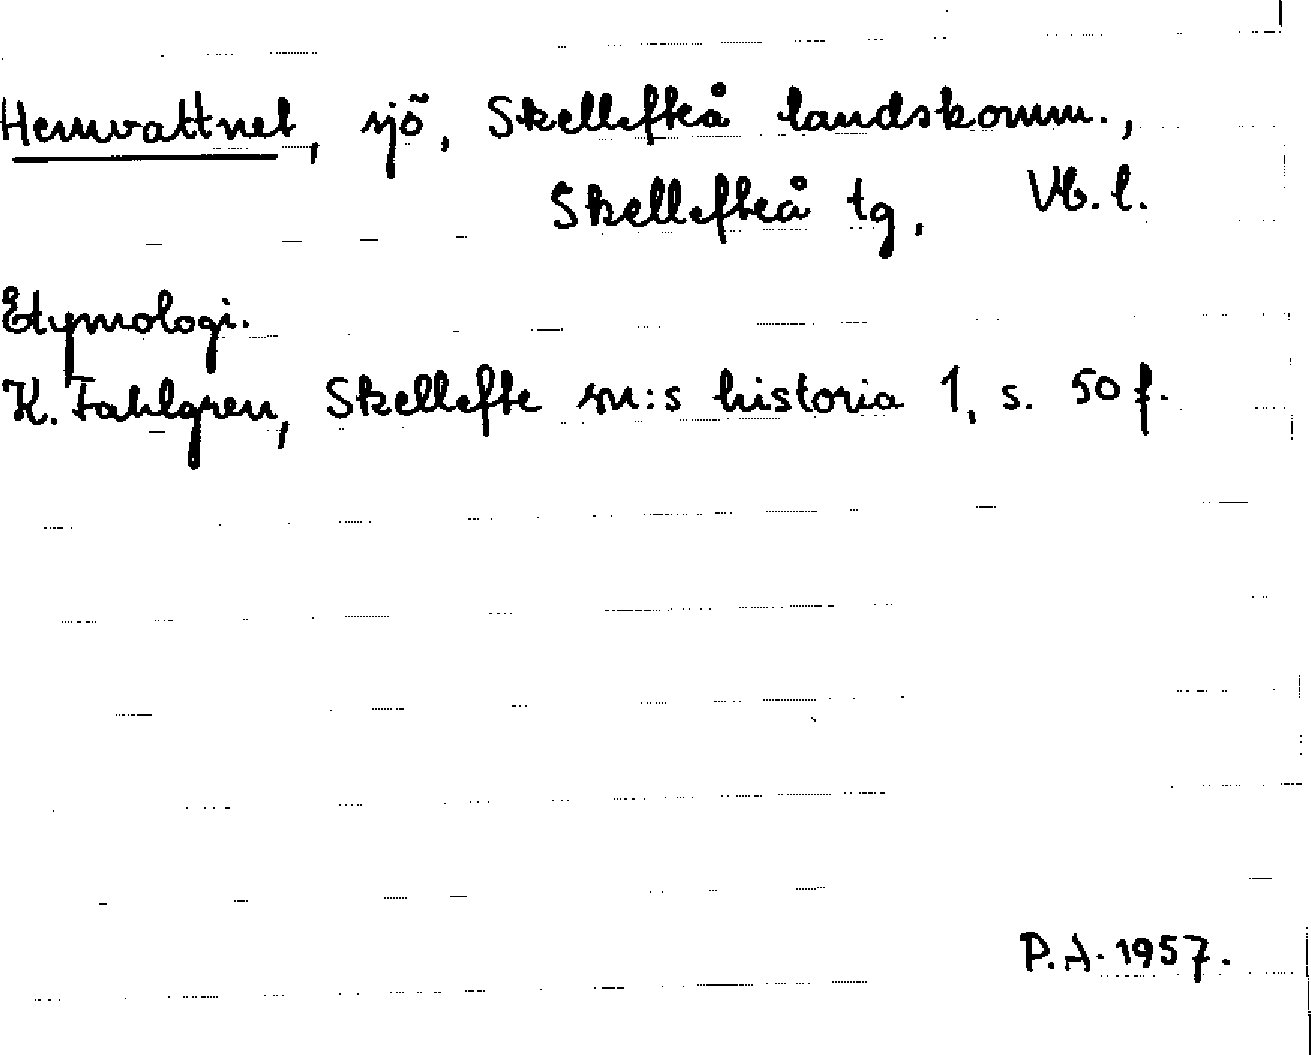 Hemvattnet, sjö, Skellefteå landskomm.,
Skellefteå tg, Vb. l.
Etymologi.
K. Fahlgren, Skellefte sn:s historia 1, s. 50 f.
P.A. 1957.